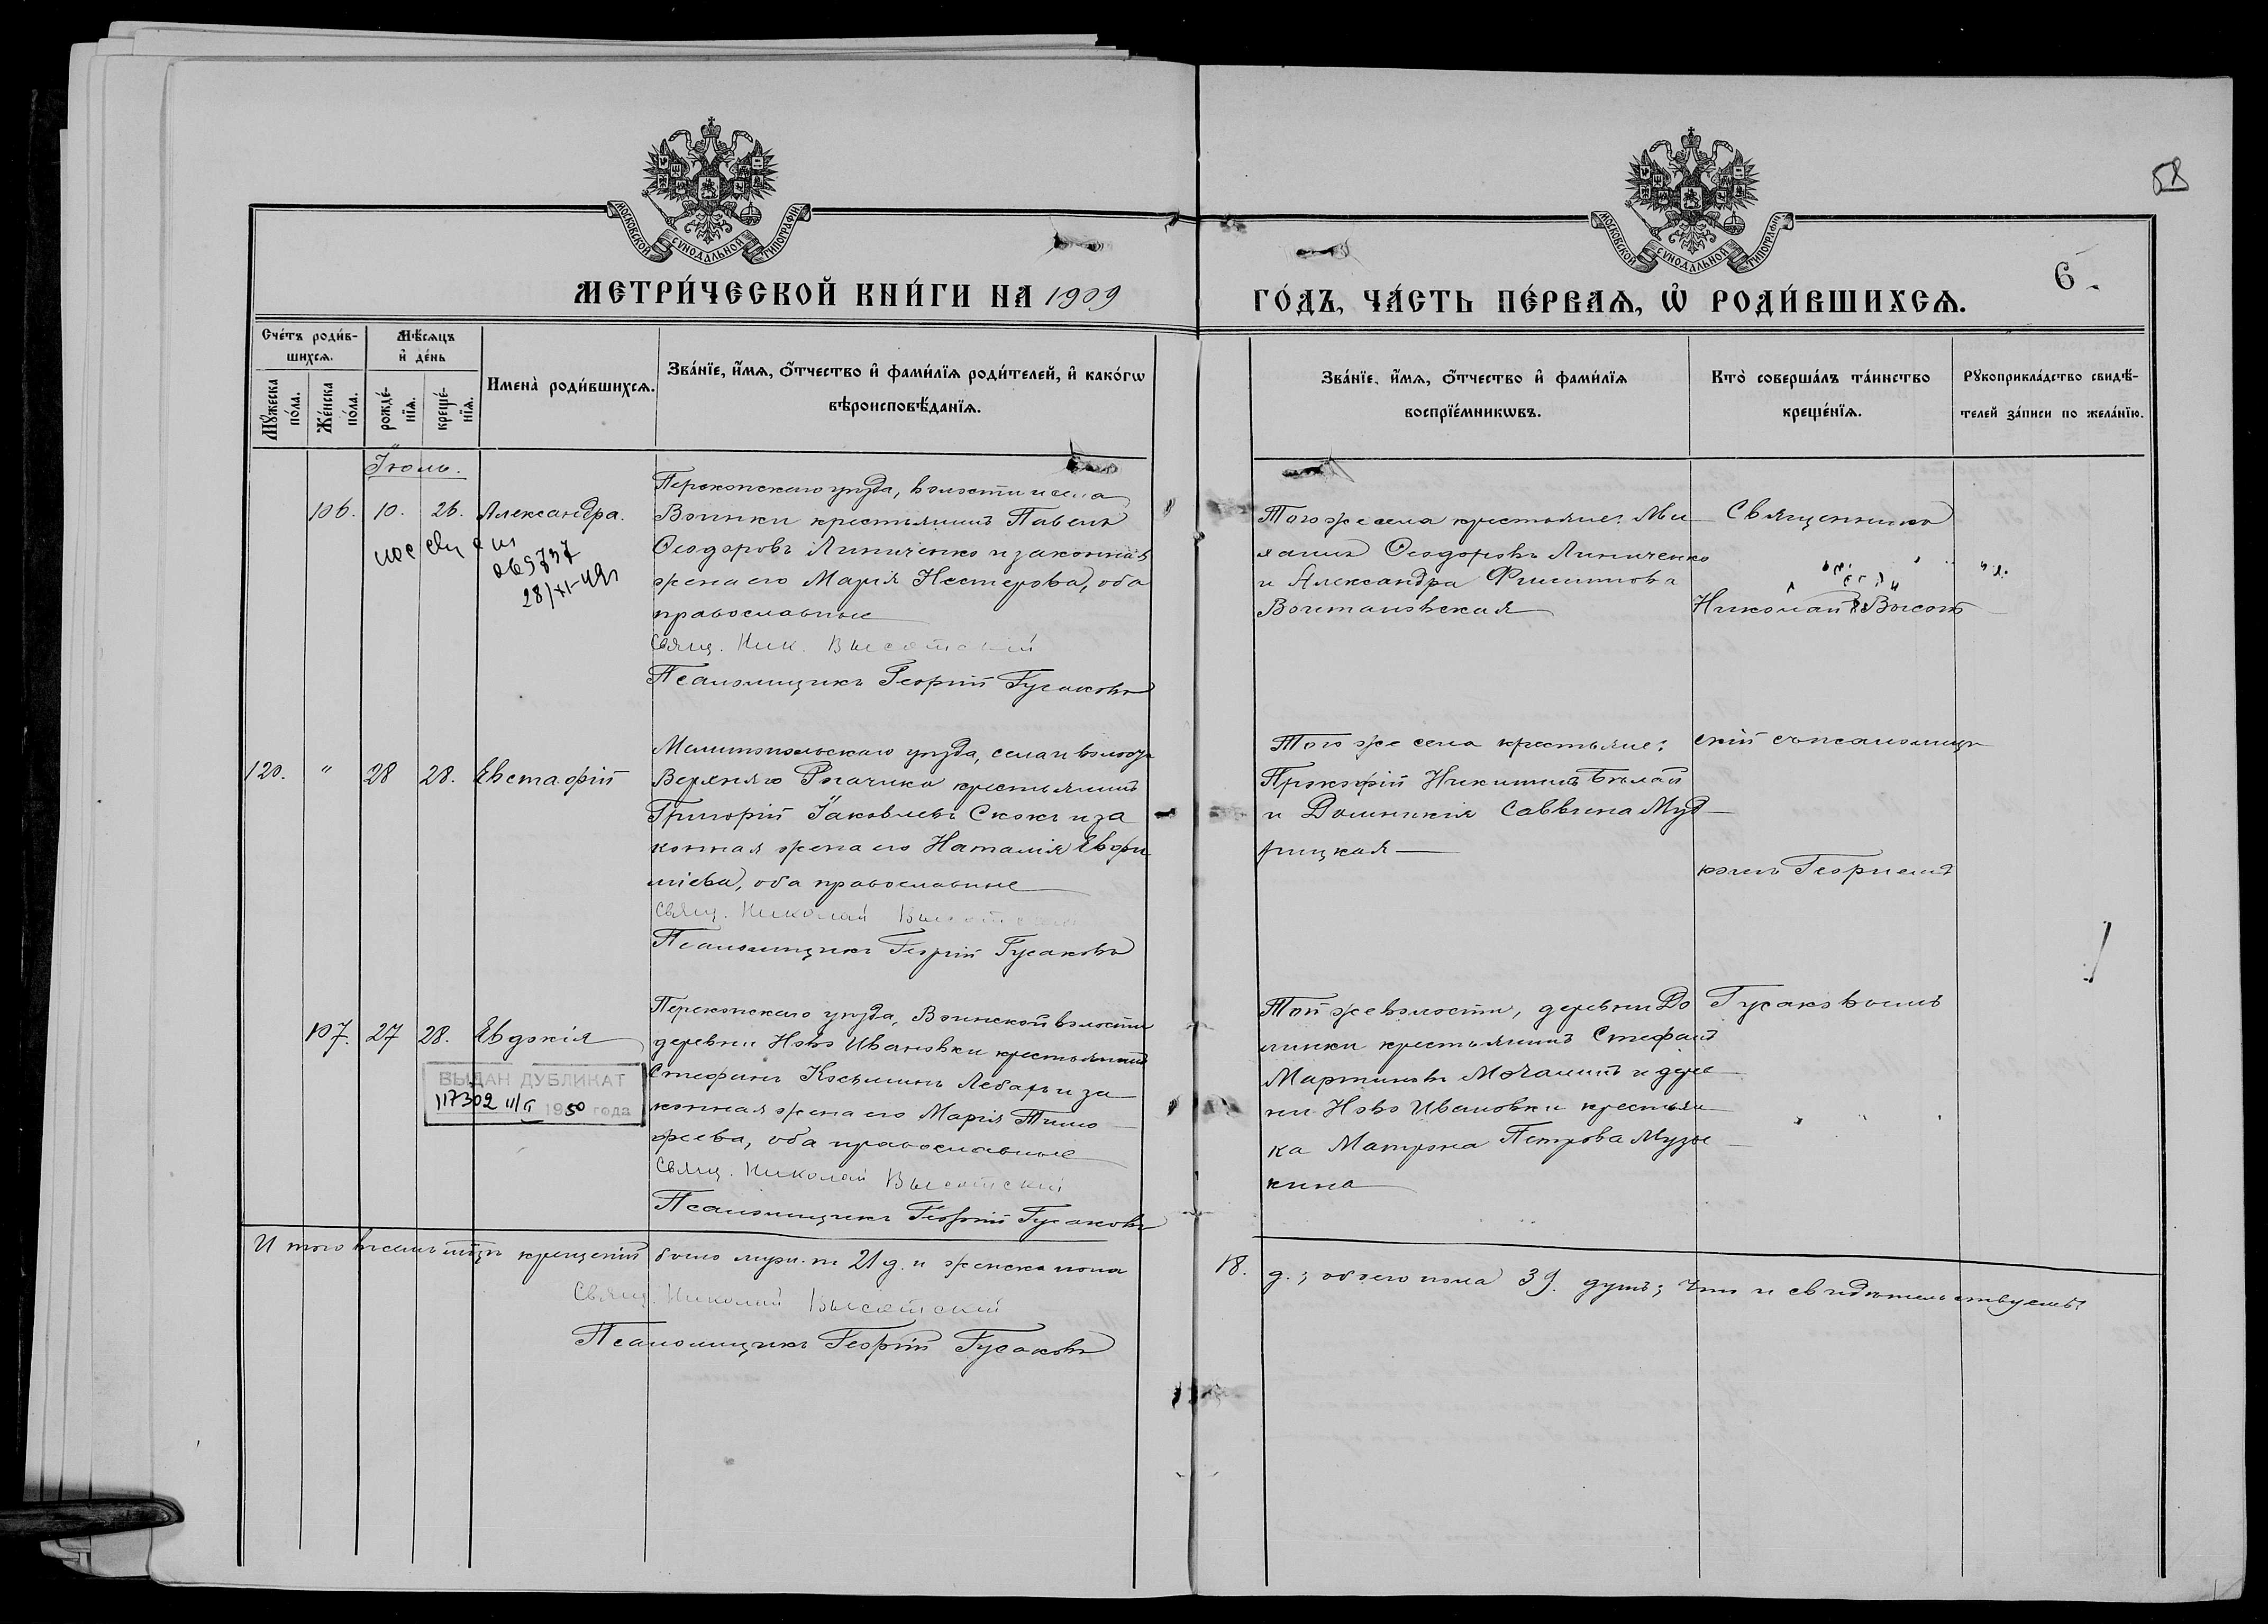 58
МОСКОВСКОЙ СѴНОДАЛЬНОЙ ТИПОГРАФІИ
МОСКОВСКОЙ СѴНОДАЛЬНОЙ ТИПОГРАФІИ
6
МЕТРИ́ЧЕСКОЙ КНИ́ГИ НА 1909
ГО́ДЪ, ЧА́СТЬ ПЕ́РВАѦ, Ѡ РОДИ́ВШИХСѦ.
Сче́тъ роди́в-
шихсѧ.
Мѣ́сѧцъ
и де́нь
Мꙋ́жеска
по́ла.
Же́нска
по́ла.
рожде́-
нїѧ.
креще́-
нїѧ.
Имена̀ роди́вшихсѧ.
Зва́нїе, и́мѧ, ѻ́тчество и фами́лїѧ роди́телей, и како́гѡ
вѣроисповѣ́данїѧ.
Зва́нїе, и́мѧ, ѻ́тчество и фами́лїѧ
воспрїе́мникѡвъ.
Кто̀ соверша́лъ та́инство
креще́нїѧ.
Рꙋкоприкла́дство свидѣ́-
телей за́писи по жела́нїю.
Іюль.
106. 10. 26. Александра.
069737
28/XI-49г
Перекопскаго уѣзда, волости и села
Воинки крестьянинъ Павелъ
Ѳеодоровъ Линиченко и законная
жена его Марія Нестерова, оба
православные
Свящ. Ник. Высотскій
Псаломщикъ Георгій Гусаковъ
Того же села крестьяне: Ми
хаилъ Ѳеодоровъ Линиченко
и Александра Филиппова
Войтановская
Священникъ
Николай Высот
120. " 28 28. Евстафій
Мелитопольскаго уѣзда, села и волости
Верхняго Рогачика крестьянинъ
Григорій Іаковлевъ Скокъ и за
конная жена его Наталія Евфи
міева, оба православные
Свящ. Николай Высотскій
Псаломщикъ Георгій Гусаковъ
Того же села крестьяне:
Прокофій Никитинъ Бѣлай
и Домникія Саввина Муд
рицкая
скій съ псаломщи
комъ Георгіемъ
107. 27 28. Евдокія
ВЫДАН ДУБЛИКАТ
117302 1950 года
Перекопскаго уѣзда, Воинской волости
деревни Ново Ивановки крестьянинъ
Стефанъ Косьминъ Лебедь и за
конная жена его Марія Тимо
феева, оба православные
Свящ. Николай Высотскій
Псаломщикъ Георгій Гусаковъ
Той же волости, деревни До
линки крестьянинъ Стефанъ
Мартиновъ Мочалинъ и дерев
ни Ново Ивановки крестьян
ка Матрона Петрова Музы
кина
Гусаковымъ
Итого въ семъ мѣсяцѣ крещеній было муж. п. 21 д. и женска пола
18. д.; обоего пола 39. душъ; что и свидѣтельствуемъ:
Свящ. Николай Высотскій
Псаломщикъ Георгій Гусаковъ